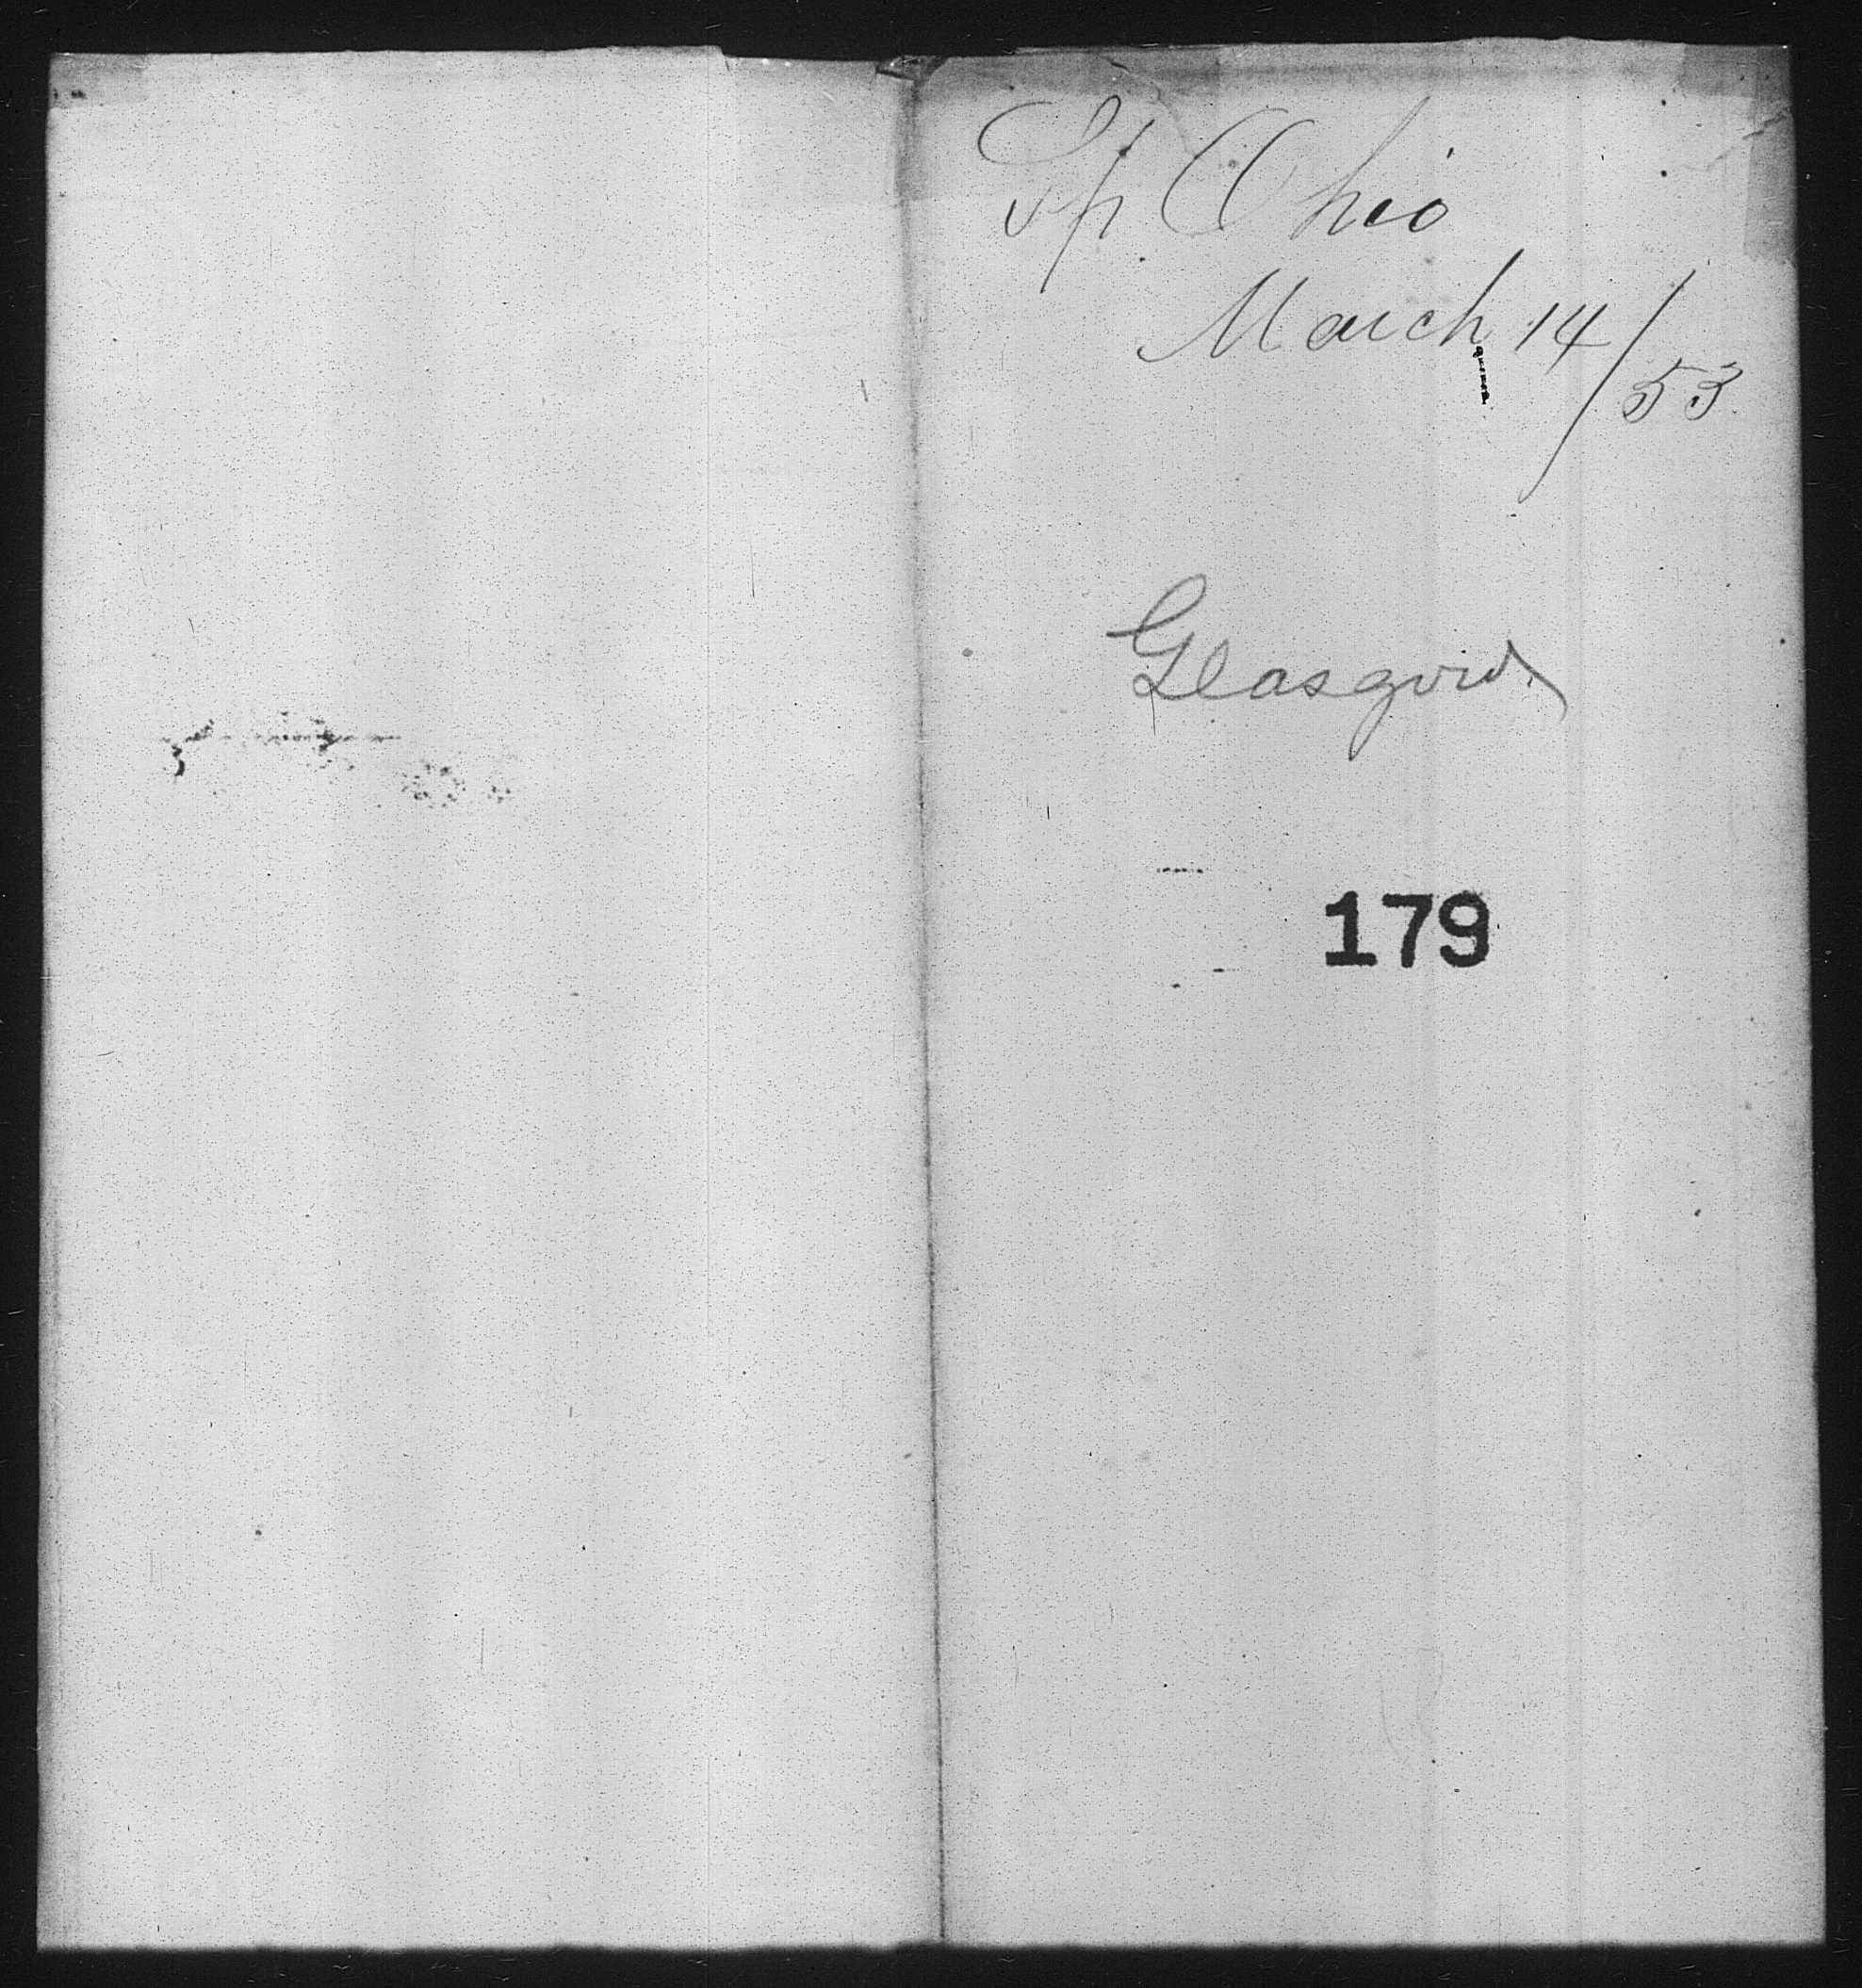 Sp Ohio
March 14/53
Glasgow
179